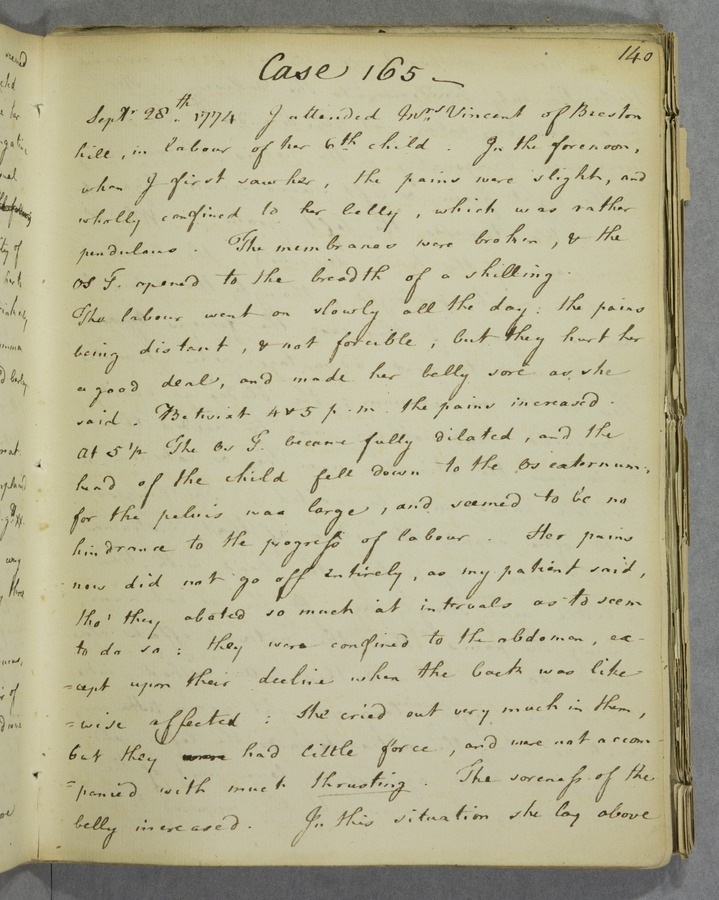 140
Case 165 –
Septr. 28th. 1774 I attended Mrs. Vincent of Beeston
hill, in labour of her 6th child. In the forenoon,
when I first saw her, the pains were slight, and
wholly confined to her belly, which was rather
pendulous. The membranes were broken, & the
os T. opened to the breadth of a shilling.
The labour went on slowly all the day: the pains
being distant, & not forcible; but they hurt her
a good deal, and made her belly sore as she
said. Betwixt 4 & 5 p.m. the pains increased.
At 5 1/2 The Os T. became fully dilated, and the
head of the child fell down to the Os externum;
for the pelvis was large, and seemed to be no
hindrance to the progress of labour. Her pains
now did not go off entirely, as my patient said,
tho' they abated so much at intervals as to seem
to do so: they were confined to the abdomen, ex-
=cept upon their decline when the back was like
=wise affected: she cried out very much in them,
but they were had little force, and were not accom-
=panied with much thrusting. The soreness of the
belly increased. In this situation she lay above